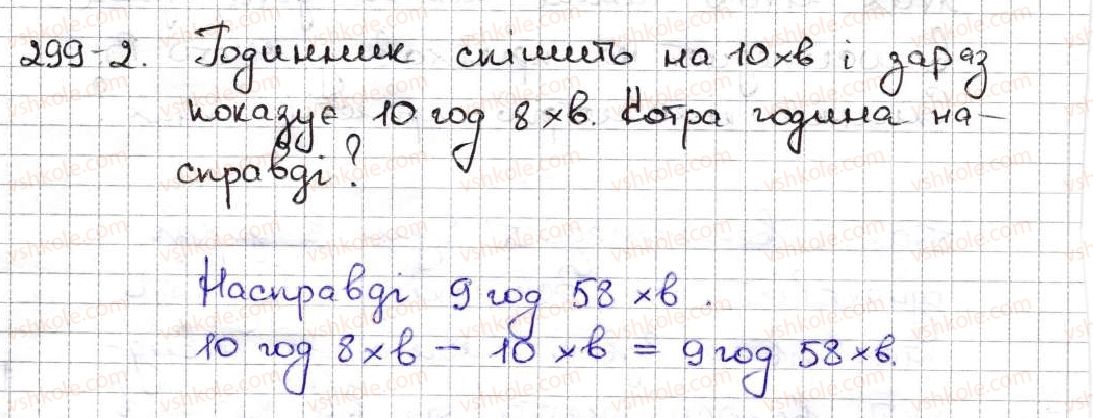 299-2. Годинник спішить на 10 хв і зараз
показує 10 год 8 хв. Котра година на-
справді?
Насправді 9 год 58 хв.
10 год 8 хв - 10 хв = 9 год 58 хв.